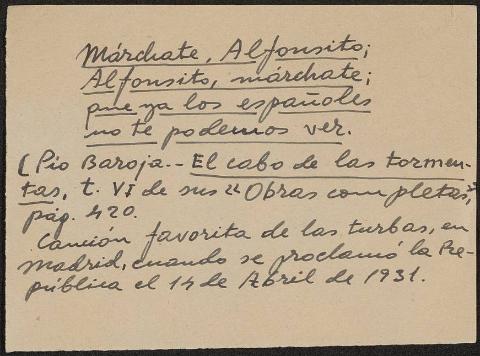 Márchate, Alfonsito;
Alfonsito, márchate;
que ya los españoles
no te podemos ver.
(Pio Baroja.- El cabo de las tormen-
tas, t. VI de sus "Obras completas,"
pág. 420.
Canción favorita de las turbas, en
Madrid, cuando se proclamó la Re-
pública el 14 de Abril de 1931.